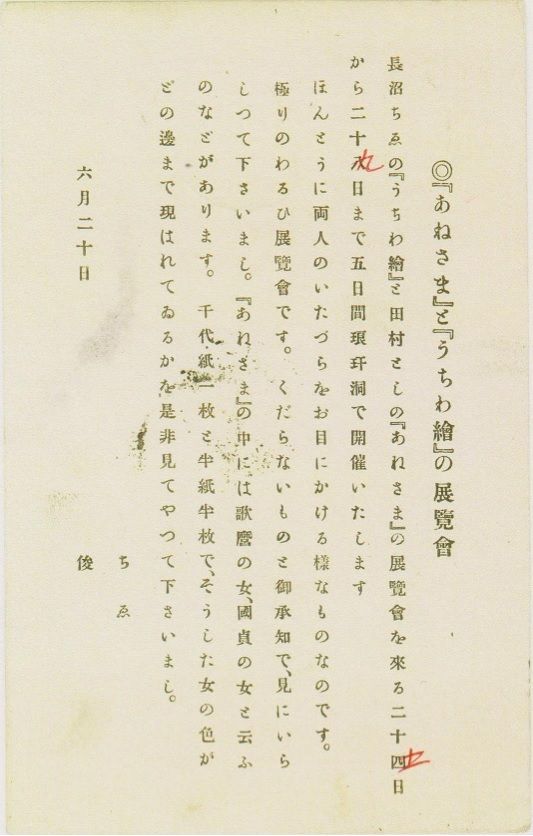 ◎『あねさま』と『うちわ繪』の展覽會
長沼ちゑの『うちわ繪』と田村としの『あねさま』の展覽會を來る二十四日
から二十九日まで五日間琅玕洞で開催いたします
ほんとうに両人のいたづらをお目にかける樣なものなのです。
極りのわるひ展覽會です。くだらないものと御承知で、見にいら
しつて下さいまし。『あねさま』の中には歌麿の女、國貞の女と云ふ
のなどがあります。千代紙一枚と半紙半枚で、そうした女の色が
どの邊まで現はれてゐるかを是非見てやつて下さいまし。
ちゑ
六月二十日 俊